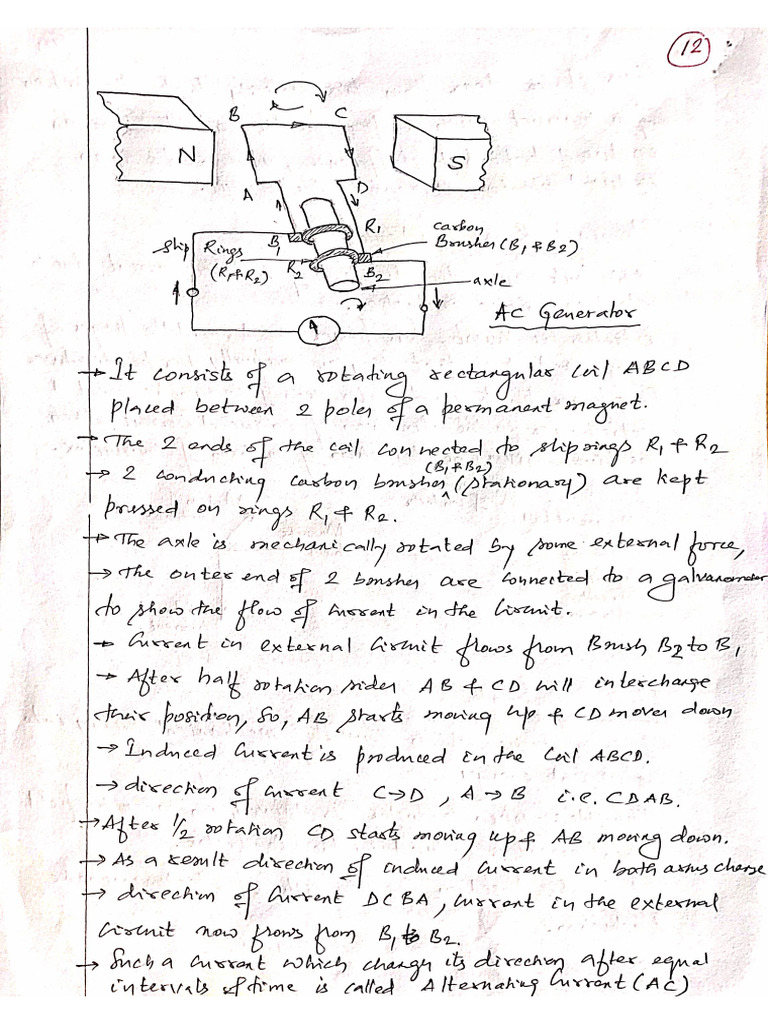 12
B C
N S
A D
R1
Slip Rings
(R1 & R2)
B1
R2
B2
carbon
Brushes (B1 & B2)
axle
A
AC Generator
→ It consists of a rotating rectangular coil ABCD
placed between 2 poles of a permanent magnet.
→ The 2 ends of the coil connected to slip rings R1 & R2
→ 2 conducting carbon brushes (B1 & B2) (stationary) are kept
pressed on rings R1 & R2.
→ The axle is mechanically rotated by some external force,
→ The outer end of 2 brushes are connected to a galvanometer
to show the flow of current in the circuit.
→ Current in external circuit flows from Brush B2 to B1
→ After half rotation sides AB & CD will interchange
their position, so, AB starts moving up & CD moves down
→ Induced current is produced in the coil ABCD.
→ direction of current C→D , A→B i.e. CDAB.
→ After 1/2 rotation CD starts moving up & AB moving down.
→ As a result direction of induced current in both arms change
→ direction of current DCBA, current in the external
circuit now flows from B1 to B2.
→ Such a current which change its direction after equal
intervals of time is called Alternating Current (AC)